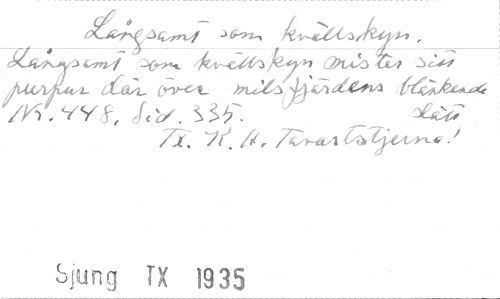 Långsamt som kvällskyn.
Långsamt som kvällskyn mister sitt
purpur där över milsfjärdens blänkande
slätt
Nr. 448, Sid. 335.
Tx. K. A. Tavaststjerna!
Sjung TX 1935